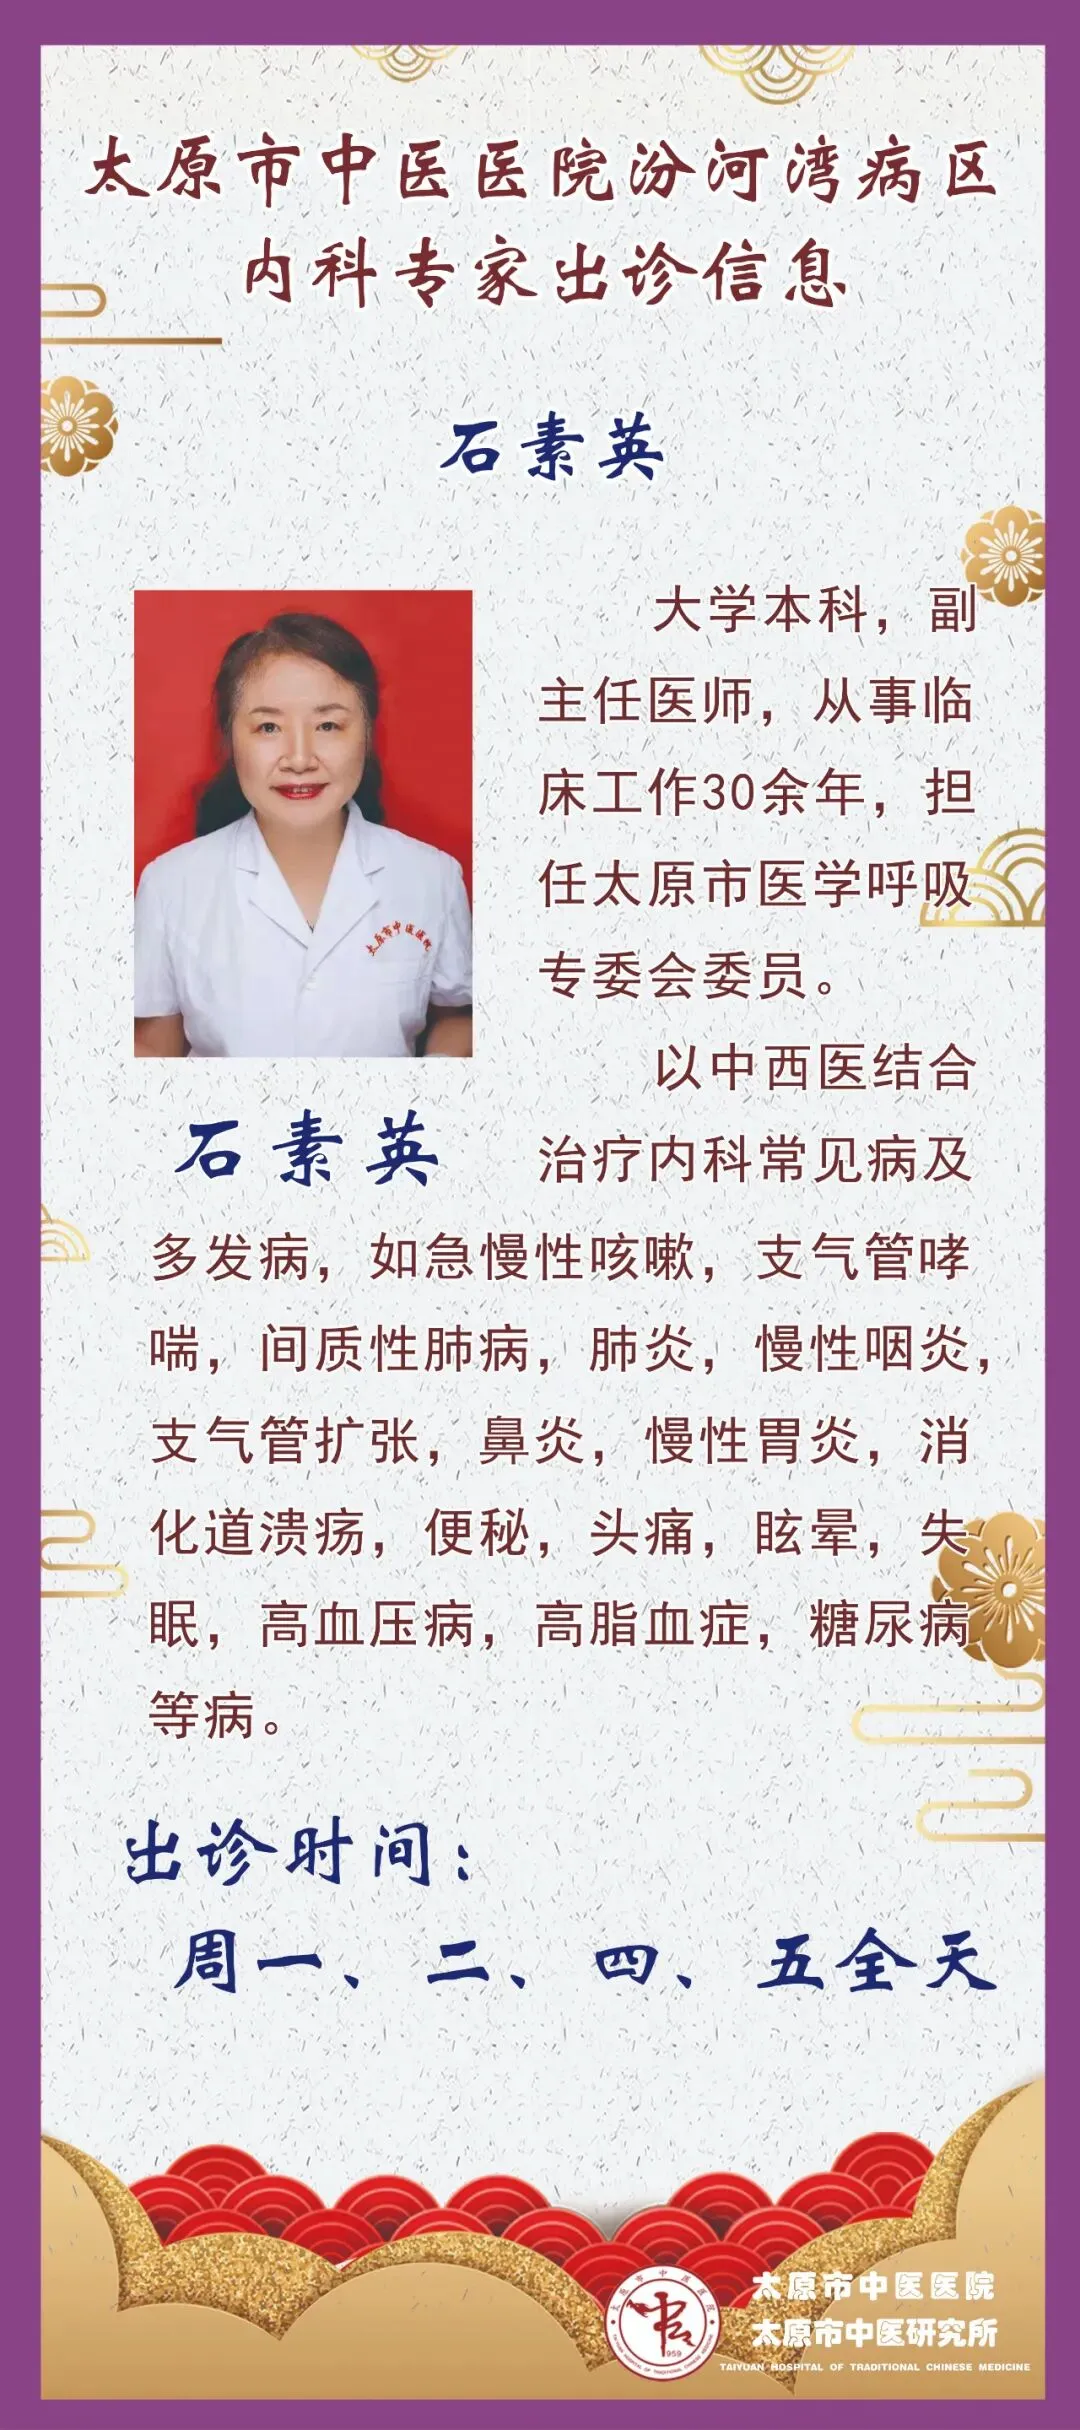 太原市中医医院汾河湾病区
内科专家出诊信息
石素英
大学本科，副
主任医师，从事临
床工作30余年，担
任太原市医学呼吸
专委会委员。
以中西医结合
治疗内科常见病及
多发病，如急慢性咳嗽，支气管哮
喘，间质性肺病，肺炎，慢性咽炎，
支气管扩张，鼻炎，慢性胃炎，消
化道溃疡，便秘，头痛，眩晕，失
眠，高血压病，高脂血症，糖尿病
等病。
太原市中医医院
石素英
出诊时间：
周一、二、四、五全天
太原市中医医院
TAIYUAN HOSPITAL OF TRADITIONAL CHINESE MEDICINE
1959
太原市中医医院
太原市中医研究所
TAIYUAN HOSPITAL OF TRADITIONAL CHINESE MEDICINE